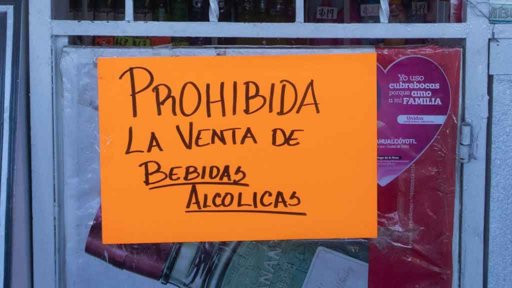 PROHIBIDA
LA VENTA DE
BEBIDAS
ALCOLICAS
Yo uso
cubrebocas
porque amo
a mi FAMILIA
Unidos